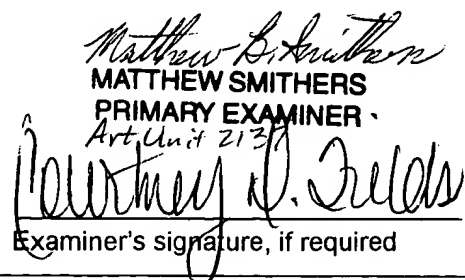 Matthew B. Smithers
MATTHEW SMITHERS
PRIMARY EXAMINER
Art Unit 2137
Courtney D. Fields
Examiner's signature, if required